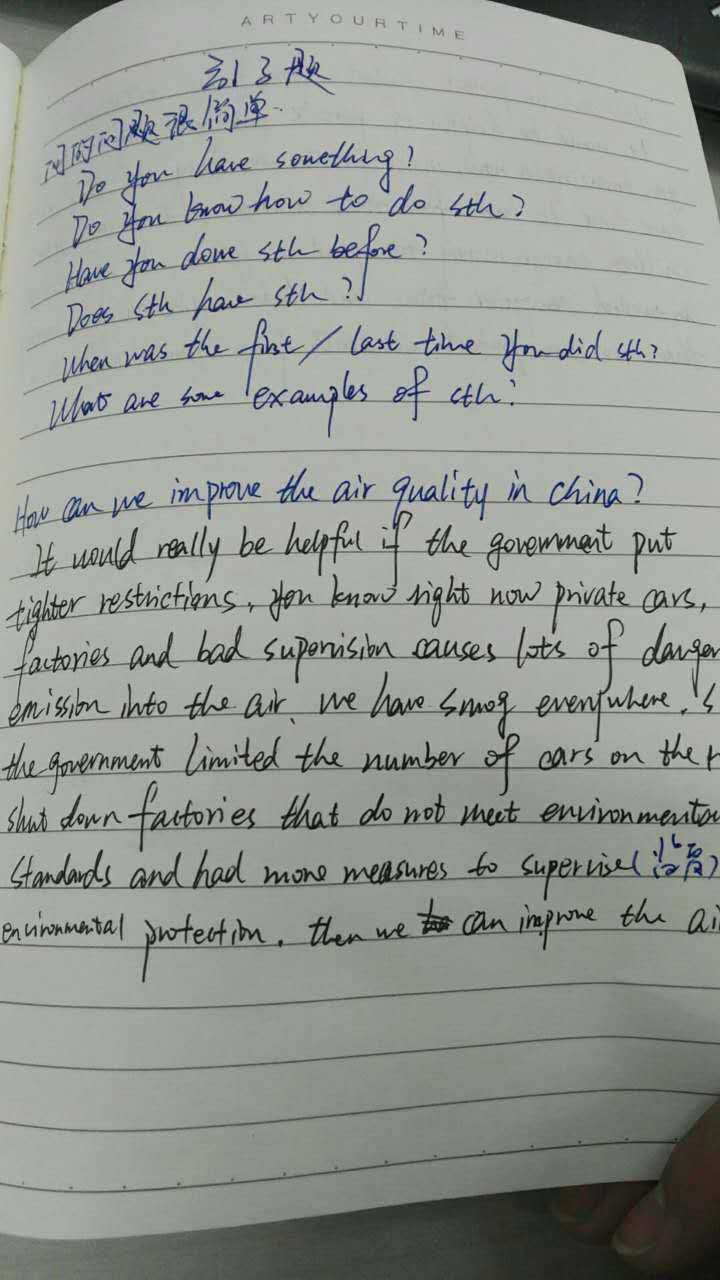 ARTYOURTIME
问的问题很简单.
Do you have something?
Do you know how to do sth?
Have you done sth before?
Does sth have sth?
When was the first / last time you did sth?
What are some examples of sth?
How can we improve the air quality in China?
It would really be helpful if the government put
tighter restrictions, you know right now private cars,
factories and bad supervision causes lots of danger
emission into the air, we have smog everywhere.
the government limited the number of cars on the
shut down factories that do not meet environmenta
standards and had more measures to supervise(
environmental protection. then we can improve the ai